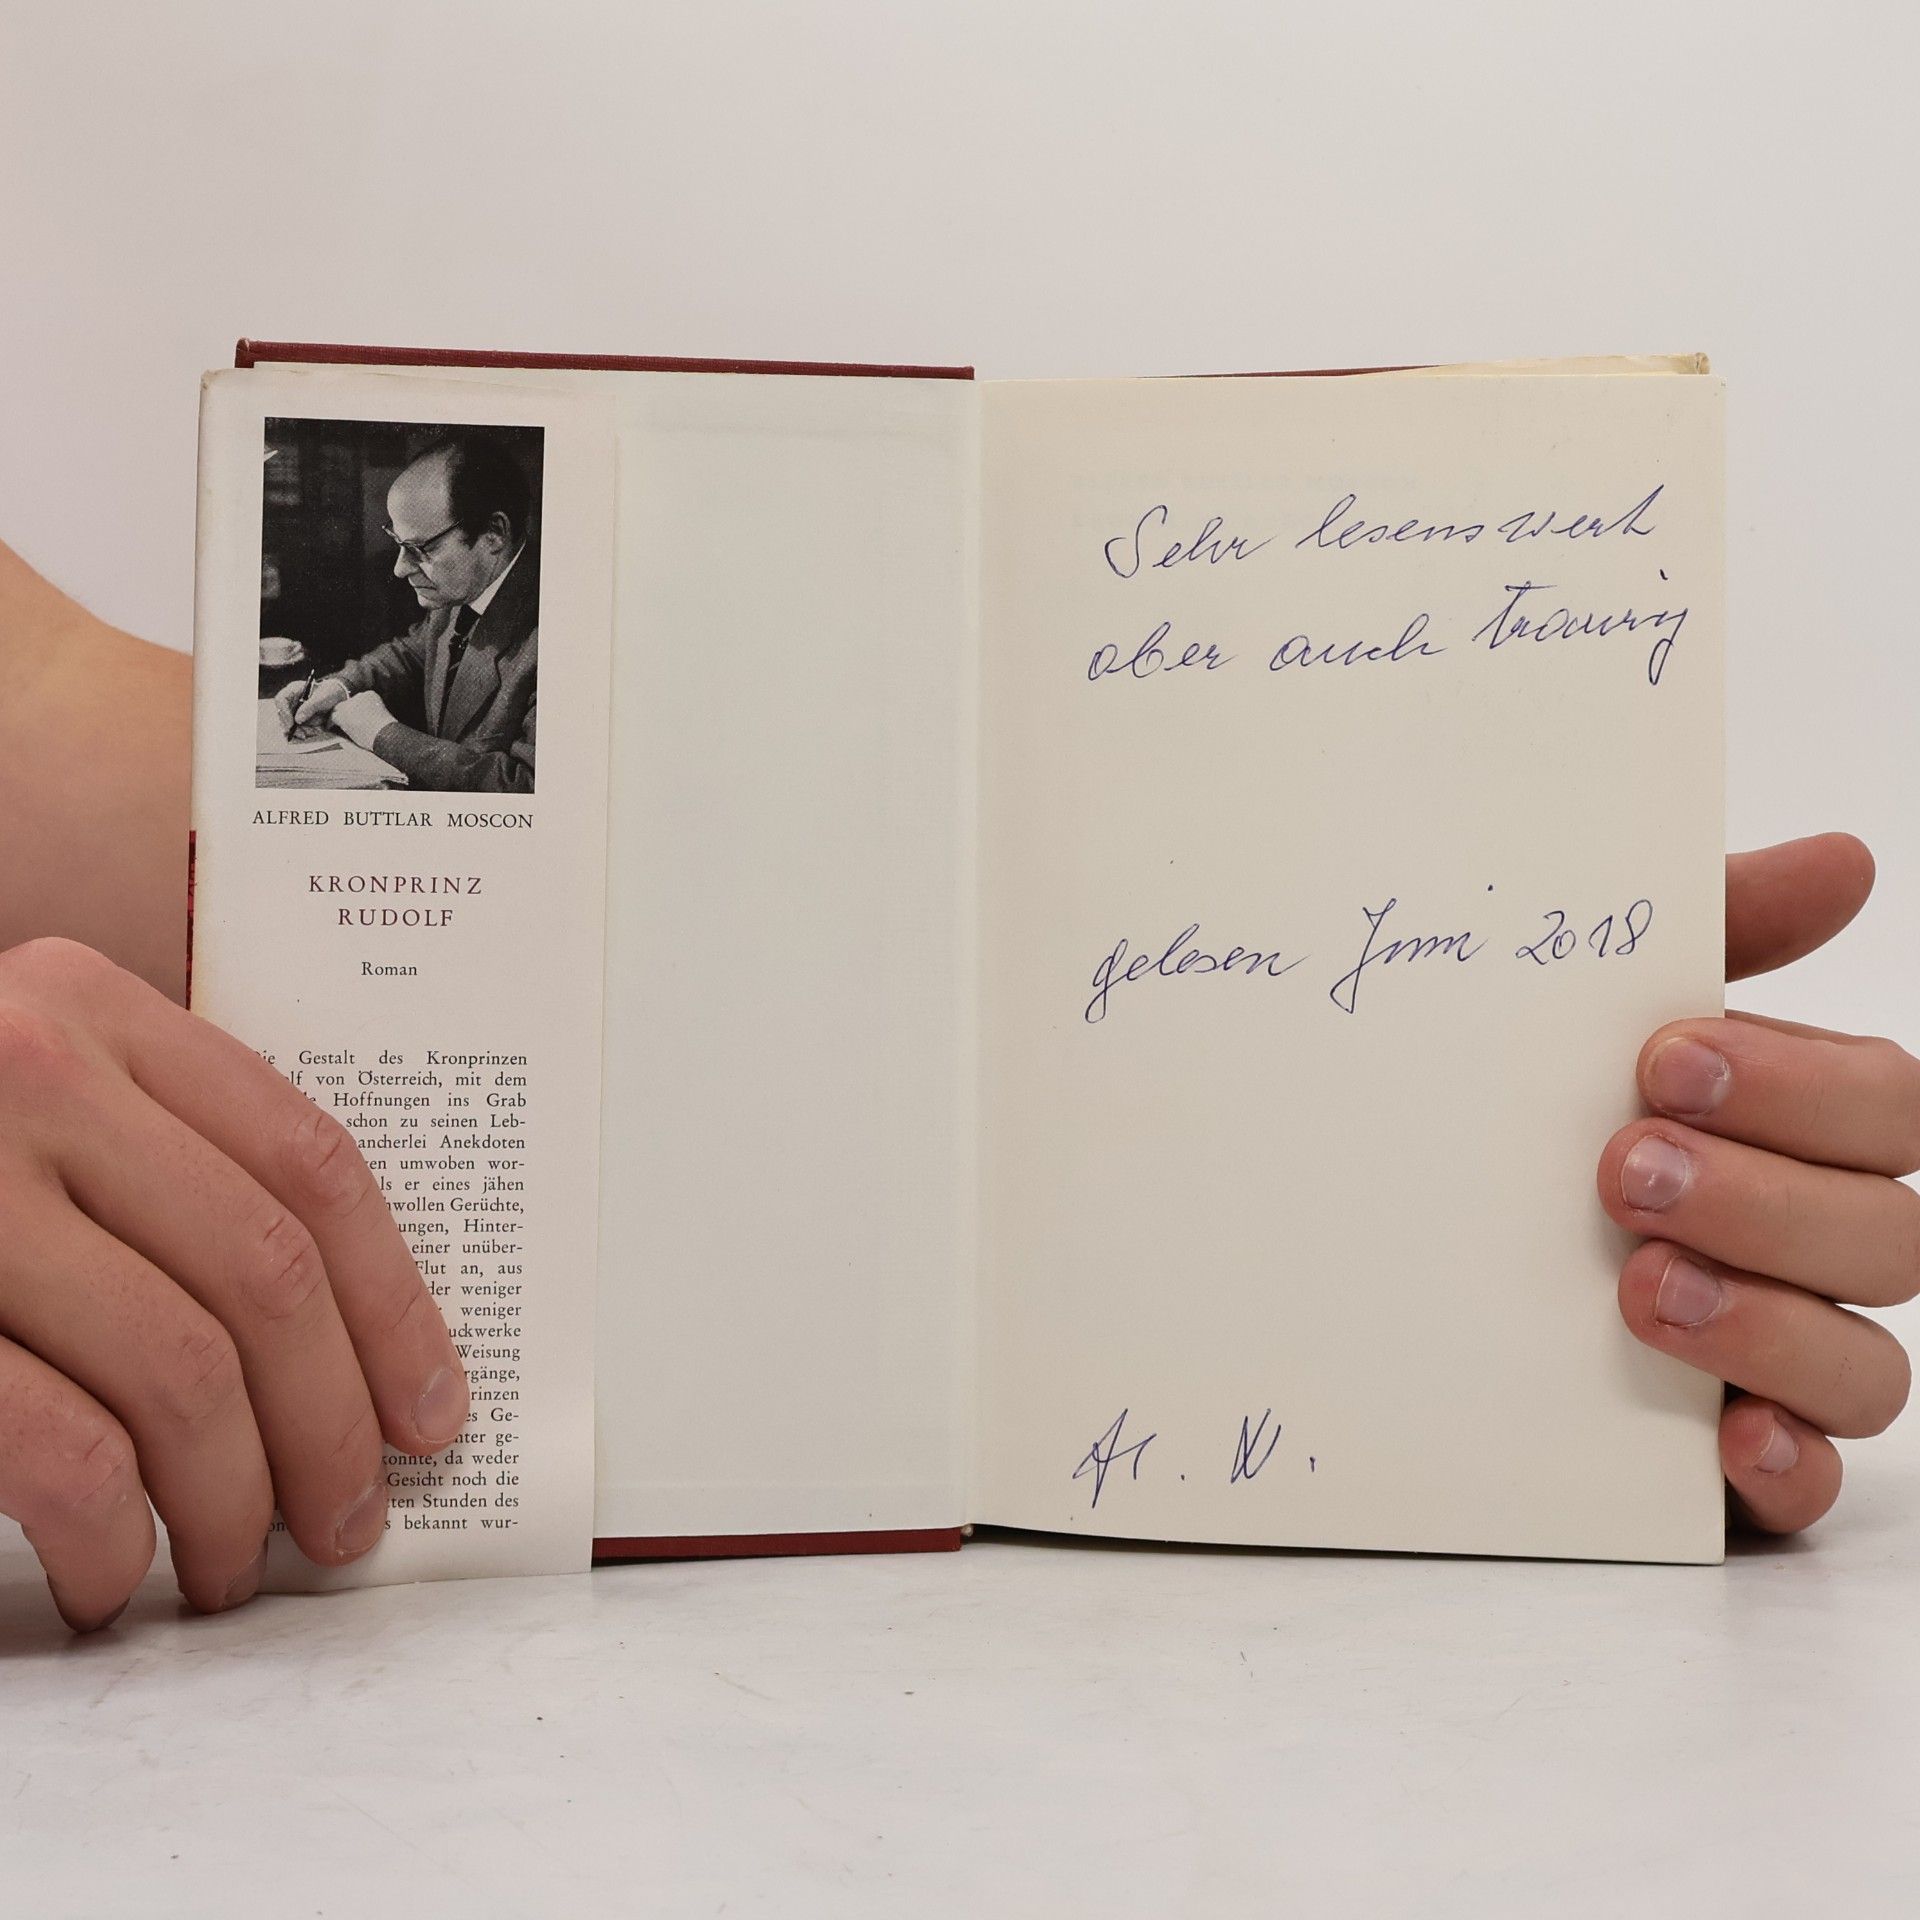 ALFRED BUTTLAR MOSCON
KRONPRINZ
RUDOLF
Roman
Gestalt des Kronprinzen
von Österreich, mit dem
Hoffnungen ins Grab
schon zu seinen Leb-
ancherlei Anekdoten
en umwoben wor-
ls er eines jähen
hwollen Gerüchte,
ungen, Hinter-
einer unüber-
Flut an, aus
der weniger
weniger
uckwerke
Weisung
rgänge,
rinzen
es Ge-
nter ge-
konnte, da weder
Gesicht noch die
ten Stunden des
s bekannt wur-
Sehr lesenswert
aber auch traurig
gelesen Juni 2018